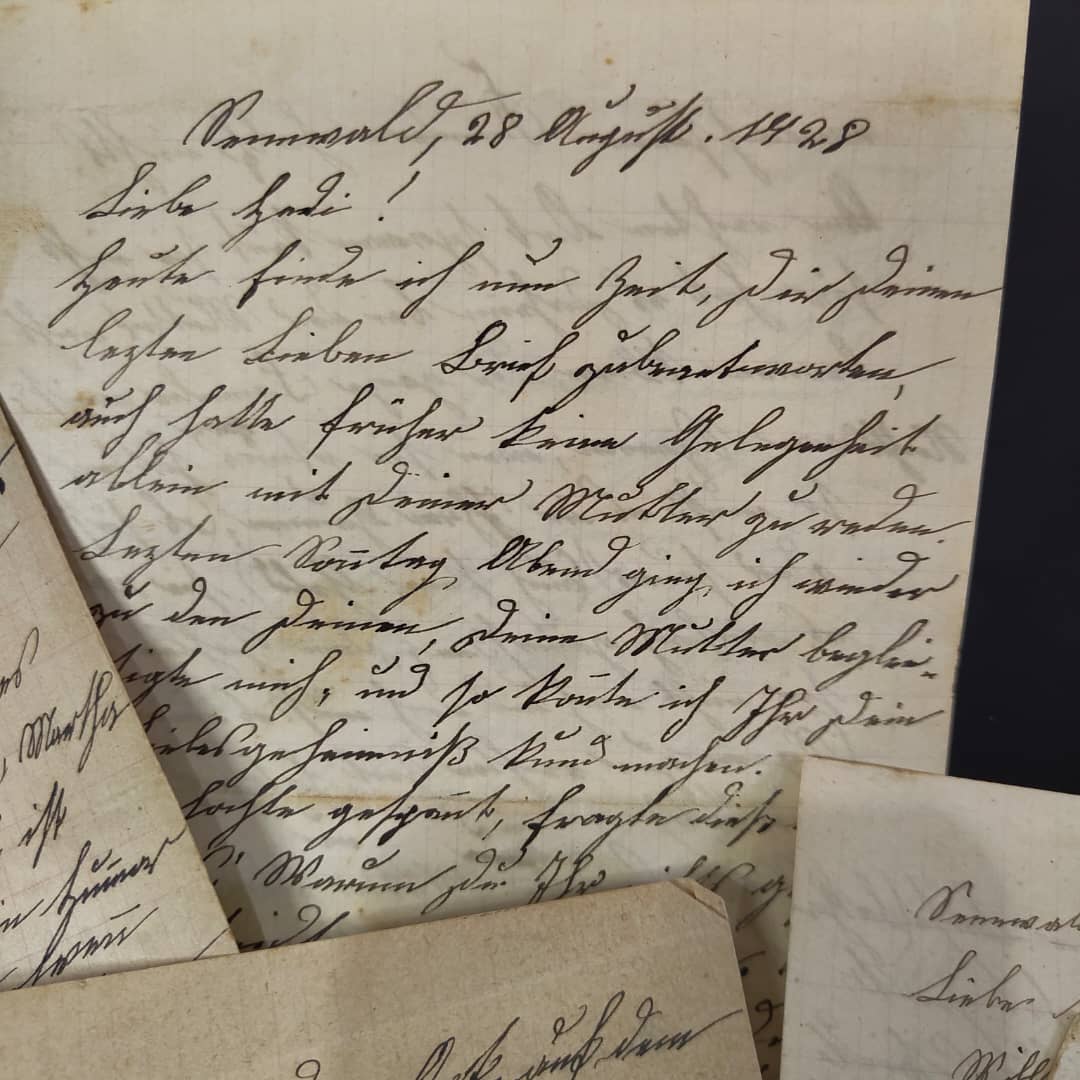 Sennwald, 28 August. 1928
Liebe Hedi!
Heute finde ich nun Zeit, Dir Deinen
lezten Lieben Brief zubeantworten,
auch hatte früher keine Gelegenheit
allein mit Deiner Mutter zu reden.
Lezten Soñtag Abend ging ich wieder
zu den Deinen, Deine Mutter beglei-
tigte mich, und so koñte ich Ihr Dein
Liebesgeheimniß kund machen.
lachte gespañt, fragte diese
Warum Du Ihr nichts
nicht
Martha
ist
weñ
auf dem
Sennwald
Liebe